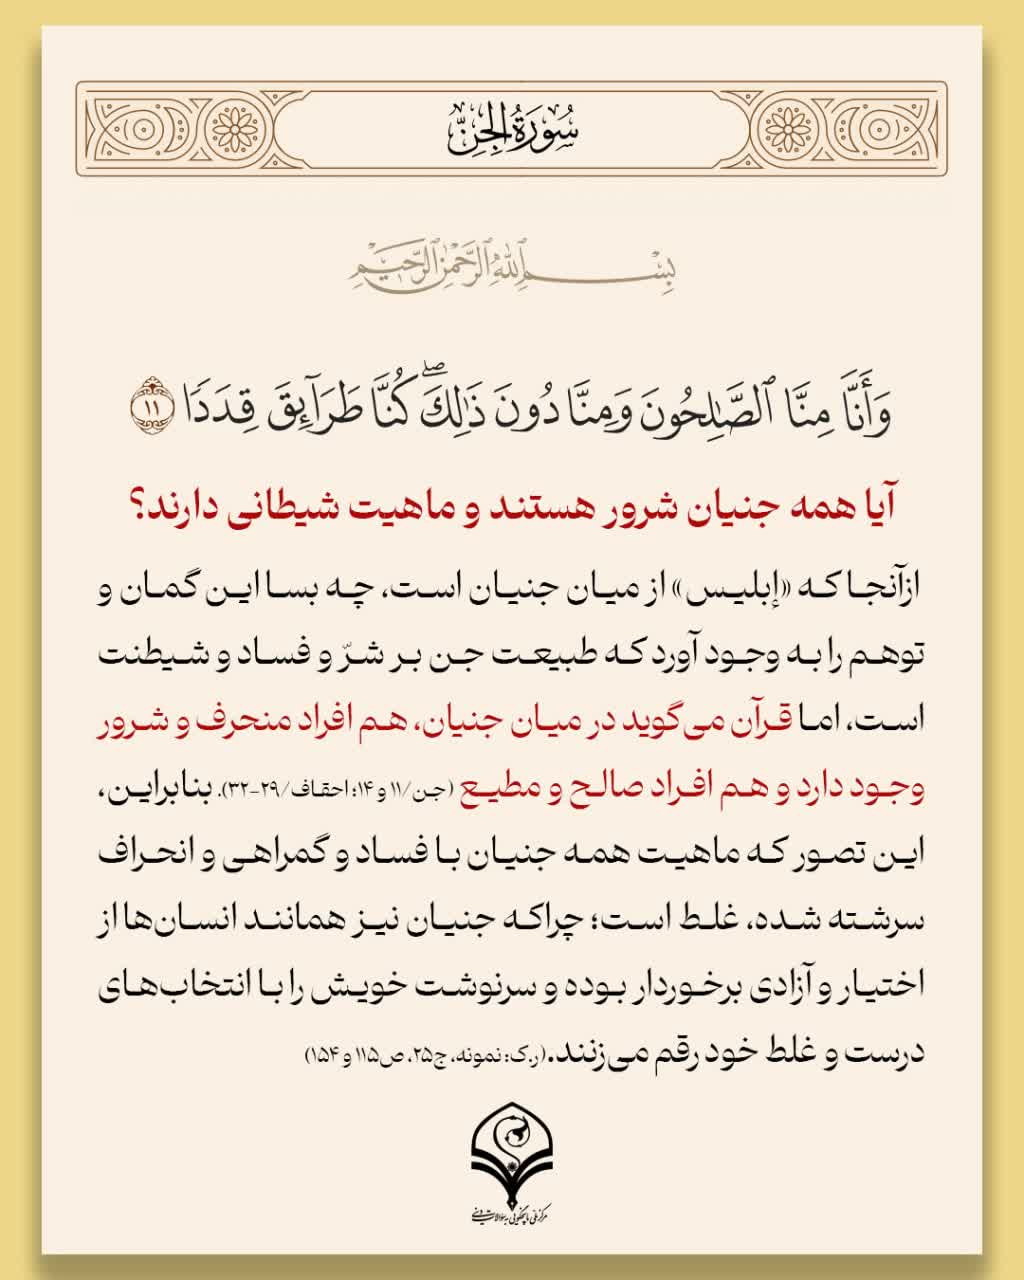 سُورَةُ الجِنِّ
بِسْمِ ٱللَّهِ ٱلرَّحْمَٰنِ ٱلرَّحِيمِ
وَأَنَّا مِنَّا ٱلصَّـٰلِحُونَ وَمِنَّا دُونَ ذَٰلِكَ ۖ كُنَّا طَرَآئِقَ قِدَدًا ١١
آیا همه جنیان شرور هستند و ماهیت شیطانی دارند؟
ازآنجا که «إبلیس» از میان جنیان است، چه بسا این گمان و
توهم را به وجود آورد که طبیعت جن بر شرّ و فساد و شیطنت
است، اما قرآن می‌گوید در میان جنیان، هم افراد منحرف و شرور
وجود دارد و هم افراد صالح و مطیع (جن/۱۱ و ۱۴؛ احقاف/۲۹-۳۲). بنابراین،
این تصور که ماهیت همه جنیان با فساد و گمراهی و انحراف
سرشته شده، غلط است؛ چراکه جنیان نیز همانند انسان‌ها از
اختیار و آزادی برخوردار بوده و سرنوشت خویش را با انتخاب‌های
درست و غلط خود رقم می‌زنند.(ر.ک: نمونه، ج۲۵، ص۱۱۵ و ۱۵۴)
مرکز ملی پاسخگویی به سؤالات دینی